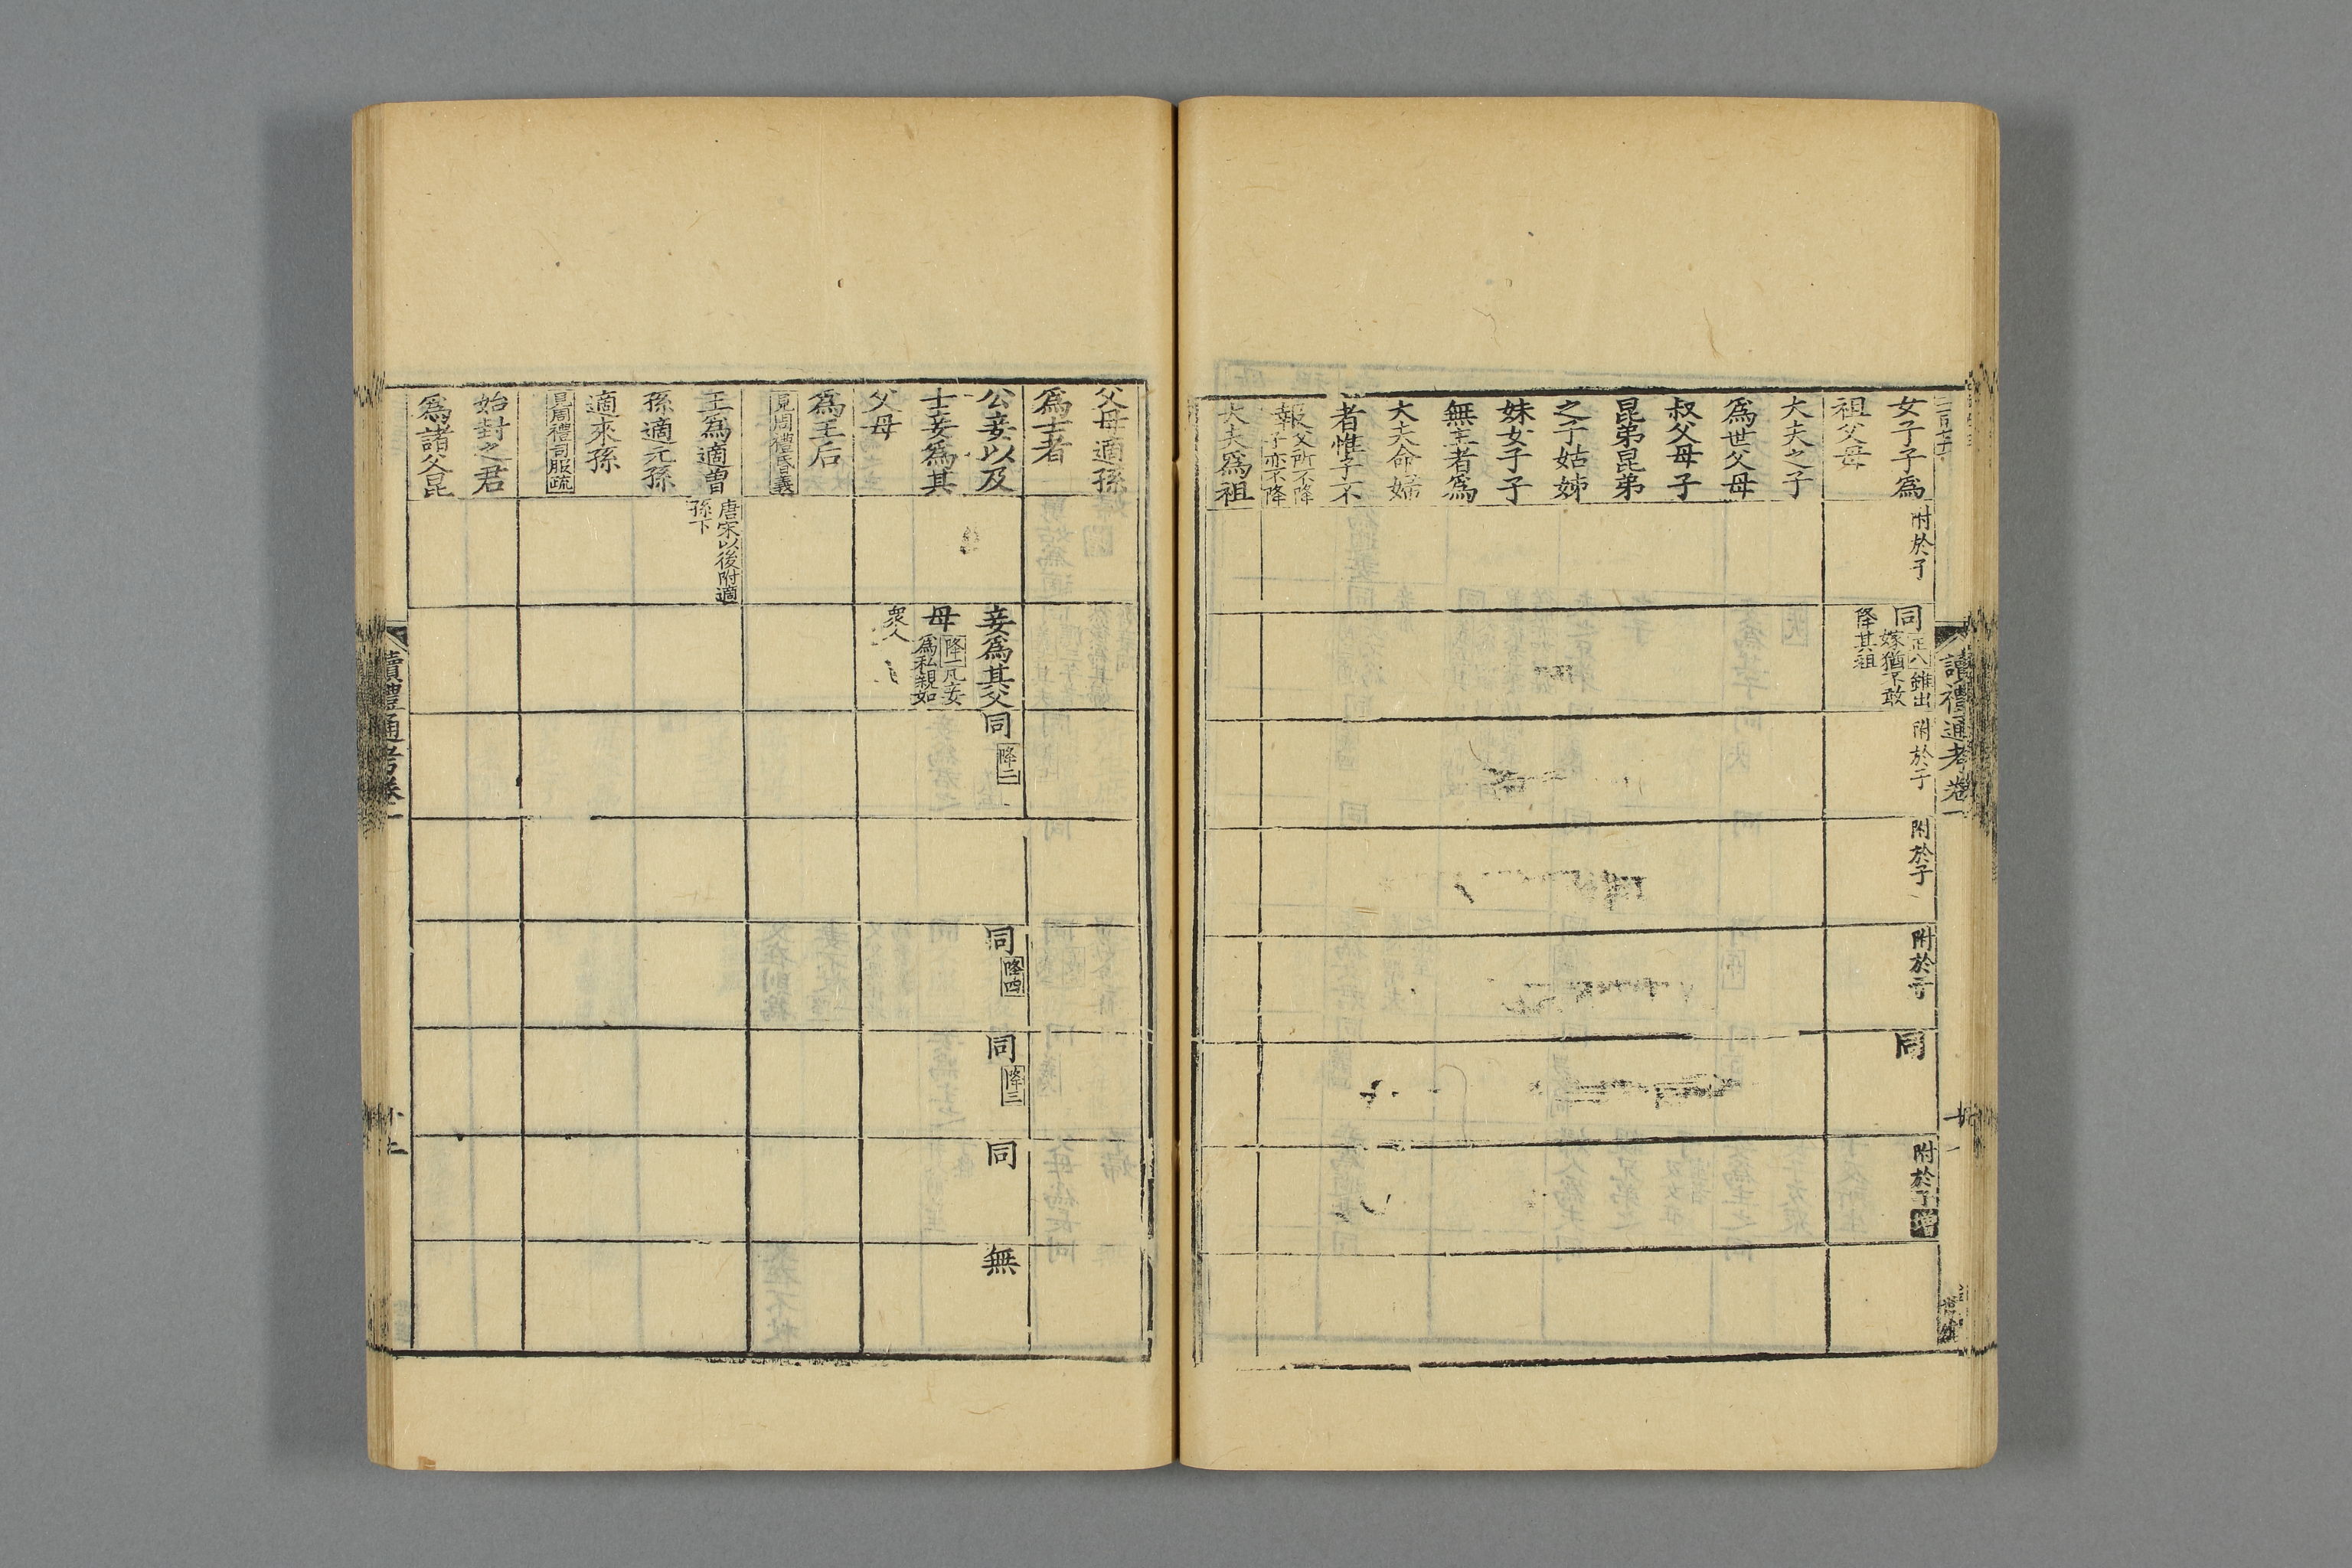 讀禮通考卷一
女子子爲
祖父母
附於子
同 正八雖出
嫁猶不敢
降其祖
附於子
附於子
附於子
同
附於子 增
大夫之子
爲世父母
叔父母子
昆弟昆弟
之子姑姊
妹女子子
無主者爲
大夫命婦
者惟子不
報 父所不降
子亦不降
大夫爲祖
父母適孫
爲士者
公妾以及
士妾爲其
父母
妾爲其父
母 降一凡妾
爲私親如
衆人
同 降二
同 降四
同 降三
同
無
爲王后
見周禮昏義
王爲適曾
孫適元孫
適來孫
見周禮司服疏
唐宋以後附適
孫下
始封之君
爲諸父昆
讀禮通考卷一